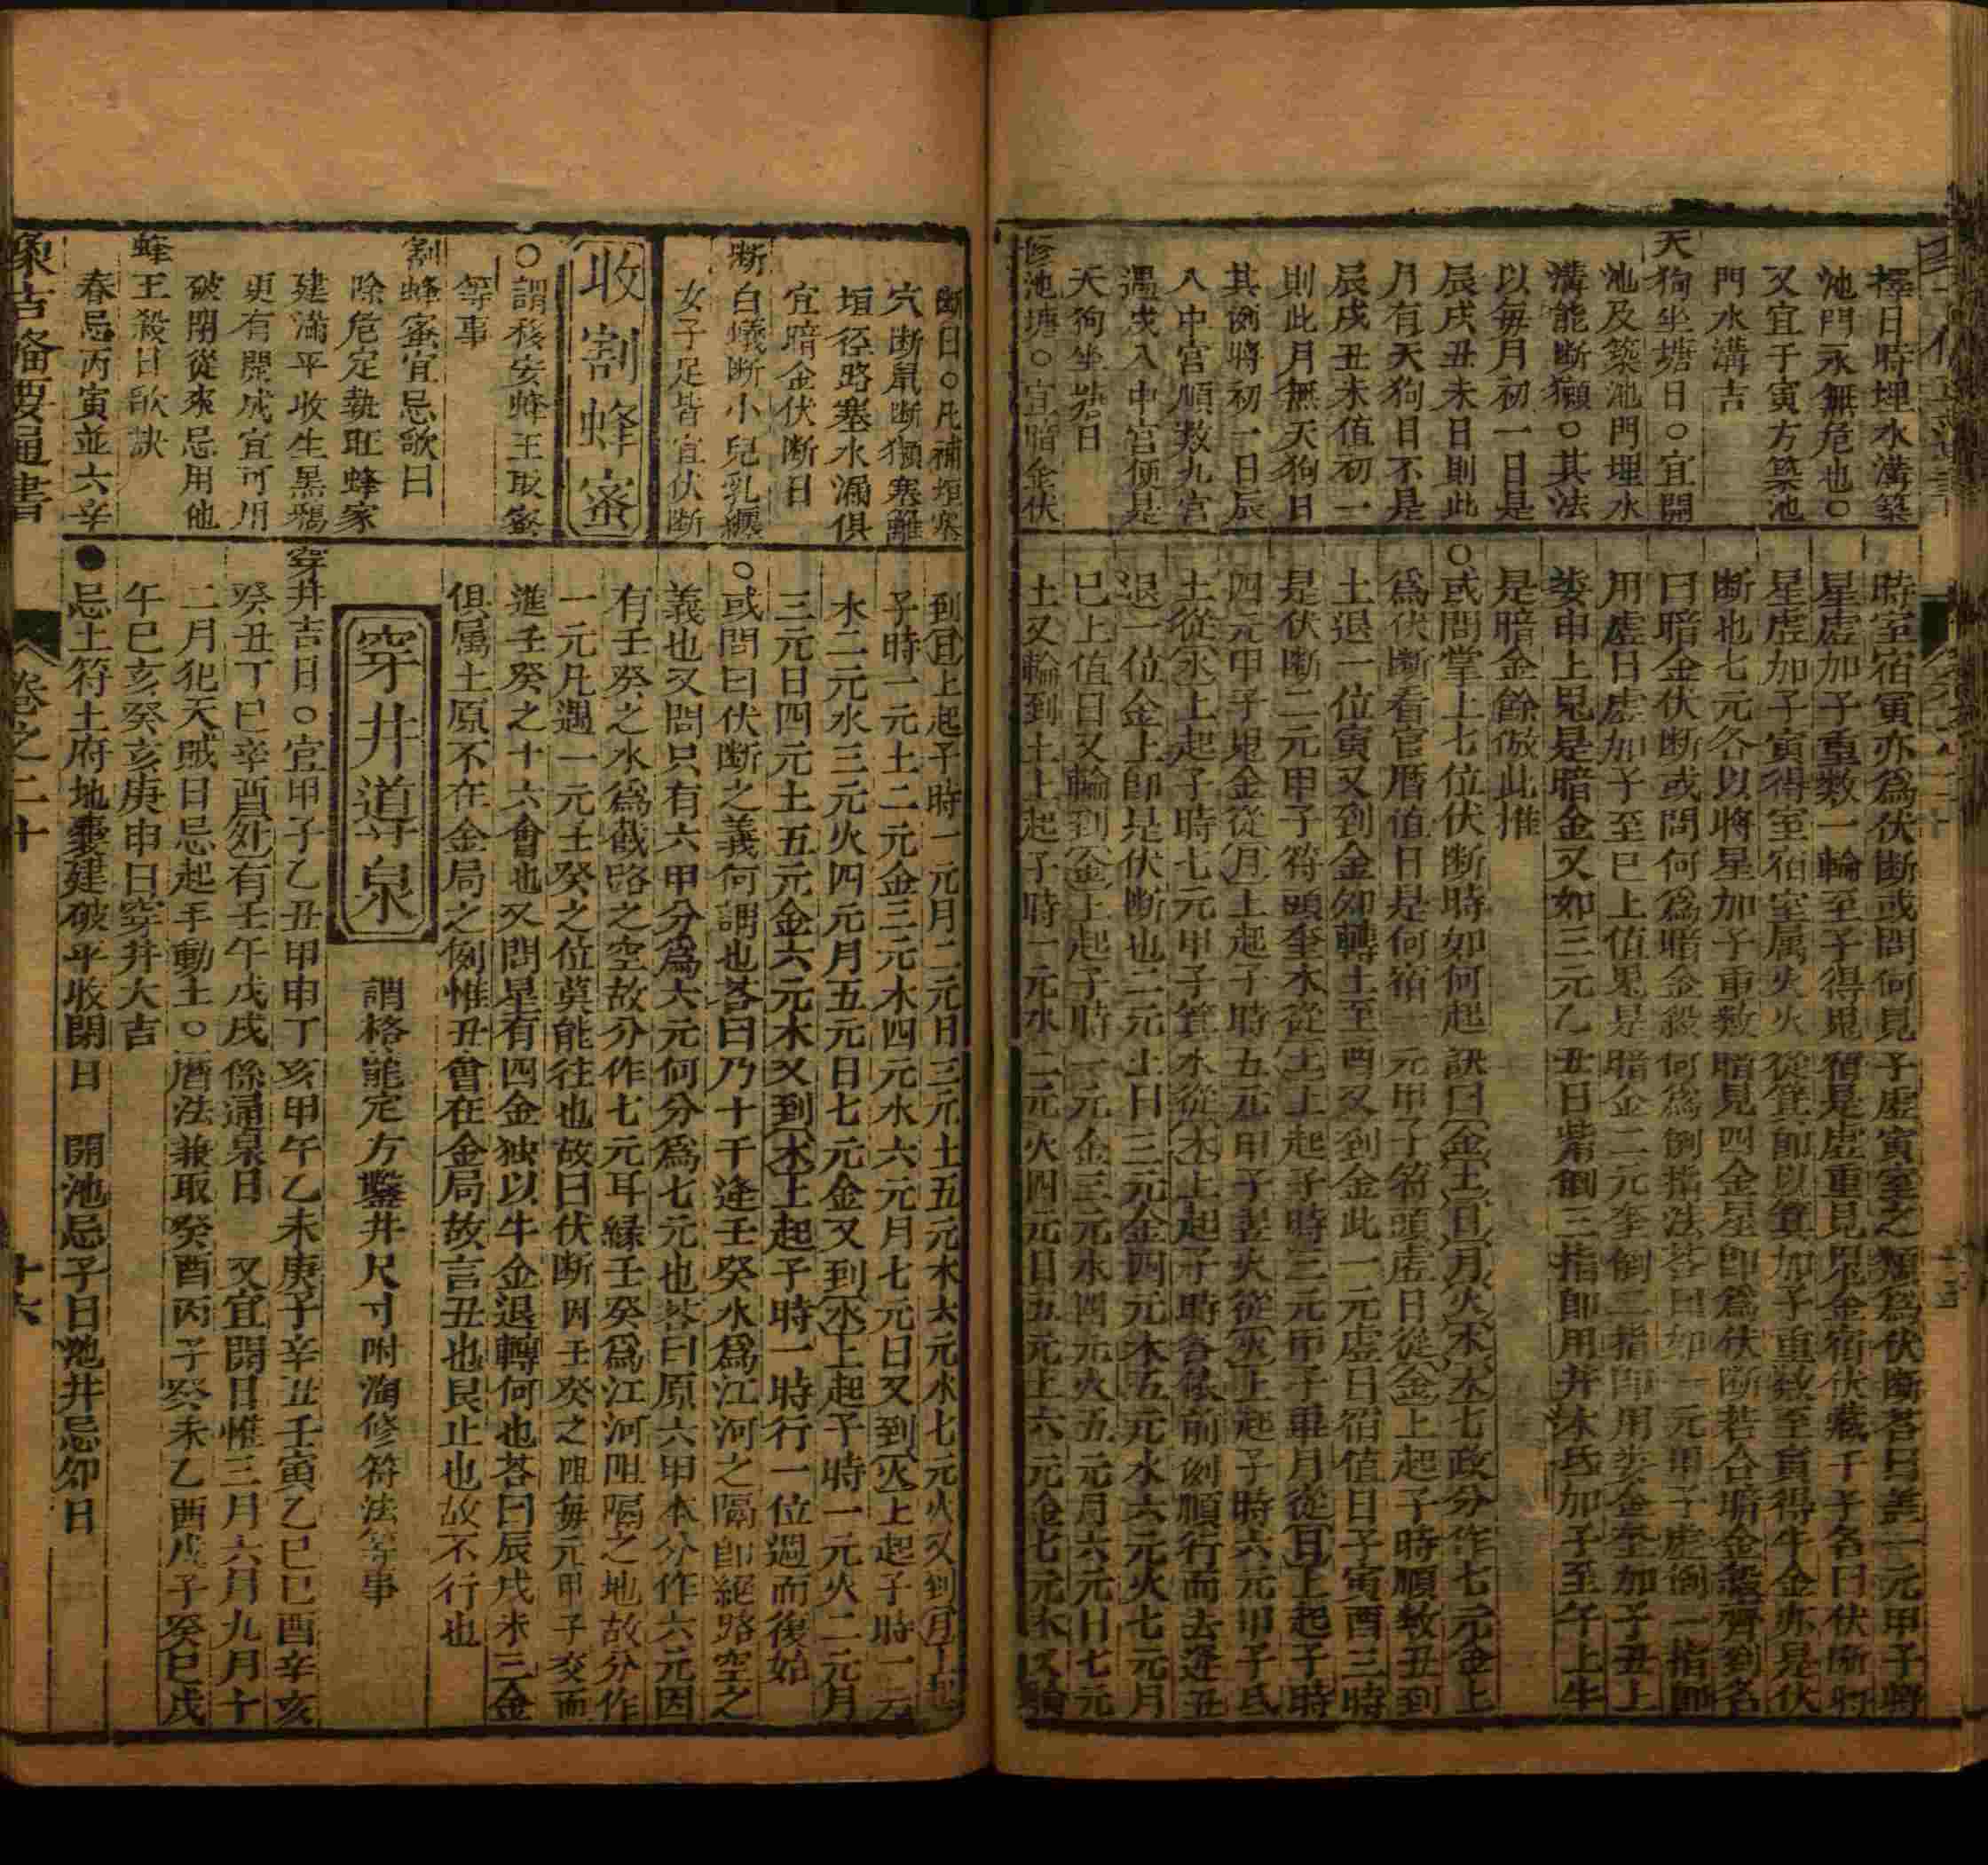 擇日時埋水溝築
池門永無危也○
又宜于寅方築池
門水溝吉
天狗坐塘日○宜開
池及築池門埋水
溝能断獺○其法
以每月初一日是
辰戌丑未日則此
月有天狗日不是
辰戌丑未值初一
則此月無天狗日
其例將初一日辰
入中宮順数九宮
遇戌入中宮便是
天狗坐塘日
修池塘○宜暗金伏
時室宿寅亦爲伏断或問何見子虛寅室之類爲伏断答曰葢一元甲子將
星虛加子重数一輪至子得鬼宿是虛重見鬼金宿伏藏于子名曰伏断將
星虛加子寅得室宿室属火火從箕卽以箕加子重数至寅得牛金亦是伏
断也七元各以將星加子重数暗見四金星卽爲伏断若合暗金殺齊到名
曰暗金伏断或問何爲暗金殺何爲倒指法答曰如一元甲子虛倒一指卽
用虛日虛加子至巳上值鬼是暗金二元奎倒二指卽用娄金奎加子丑上
娄申上鬼是暗金又如三元乙丑日觜倒三指卽用井沐氐加子至午上牛
是暗金餘倣此推
○或問掌上七位伏断時如何起訣曰金土日月火水木七政分作七元金上
爲伏断看官曆值日是何宿一元甲子符頭虛日從金上起子時順数丑到
土退一位寅又到金卯轉土至酉又到金此一元虛日宿值日子寅酉三時
是伏断二元甲子符頭奎木從土上起子時三元甲子畢月從日上起子時
四元甲子鬼金從月上起子時五元甲子翌火從火上起子時六元甲子氐
土從水上起子時七元甲子箕水從木上起子時各依前例順行而去逢丑
退一位金上卽是伏断也二元土日三元金四元木五元水六元火七元月
巳上值日又輪到金上起子時一元金三元水四元火五元月六元日七元
土又輪到土上起子時一元水二元火四元日五元土六元金七元木又輪
断日○凡補垣塞
穴断鼠断獺塞雞
垣徑路塞水漏俱
宜暗金伏断日
断白蟻断小兒乳纒
女子足皆宜伏断
收割蜂蜜
○謂移安蜂王取蜜
等事
割蜂蜜宜忌歌曰
除危定執旺蜂家
建滿平收生黑鴉
更有開成宜可用
破閉從來忌用他
蜂王殺日歌訣
春忌丙寅並六辛
到日上起子時一元月二元日三元土五元木六元水七元火又到月上起
子時一元土二元金三元木四元水六元月七元日又到火上起子時一元
木二元水三元火四元月五元日七元金又到水上起子時一元火二元月
三元日四元土五元金六元木又到木上起子時一時行一位週而後始
○或問曰伏断之義何謂也荅曰乃十干逢壬癸水爲江河之隔卽絕路空之
義也又問只有六甲分爲六元何分爲七元也荅曰原六甲本分作六元因
有壬癸之水爲截路之空故分作七元耳緣壬癸爲江河阻隔之地故分作
一元凡遇一元壬癸之位莫能往也故曰伏断因壬癸之阻每元甲子交而
進壬癸之十六會也又問星有四金独以牛金退轉何也荅曰辰戌未三金
俱属土原不在金局之例惟丑會在金局故言丑也艮止也故不行也
穿井導泉
謂格龍定方鑿井尺寸附淘修符法等事
穿井吉日○宜甲子乙丑甲申丁亥甲午乙未庚子辛丑壬寅乙巳巳酉辛亥
癸丑丁巳辛酉外有壬午戊戌係通泉日 又宜開日惟三月六月九月十
二月犯天賊日忌起手動土○曆法兼取癸酉丙子癸未乙酉戊子癸巳戊
午巳亥癸亥庚申日穿井大吉
●忌土符土府地囊建破平收閉日 開池忌子日池井忌卯日
象吉備要通書 卷之二十 十六